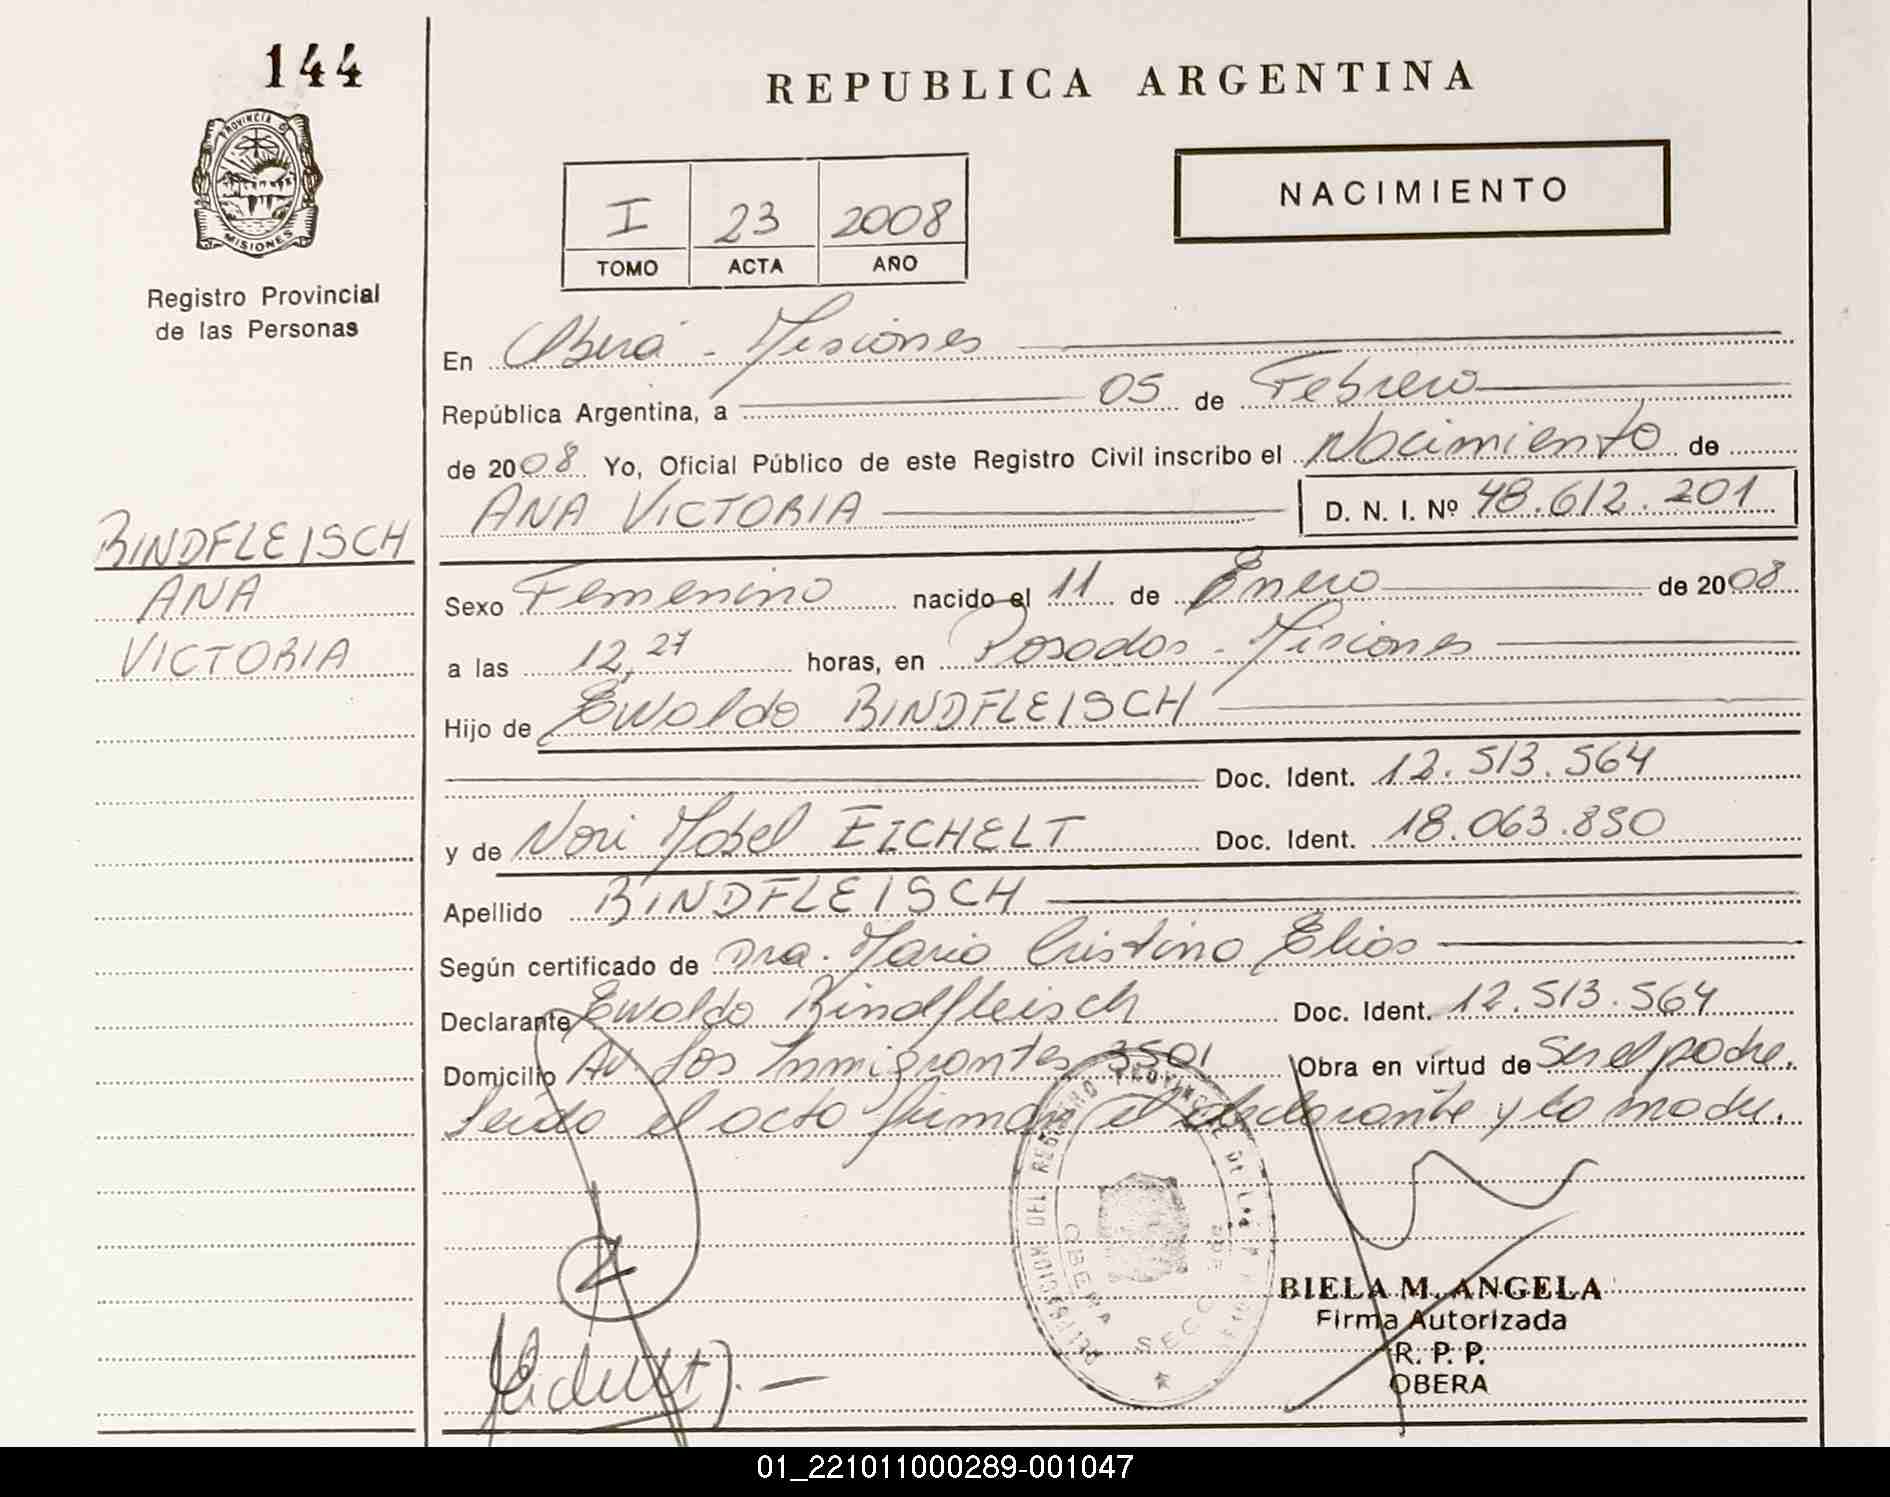 144
PROVINCIA D
MISIONES
Registro Provincial
de las Personas
REPUBLICA ARGENTINA
NACIMIENTO
I 23 2008
TOMO ACTA AÑO
En Oberá - Misiones
República Argentina, a 05 de Febrero
de 2008 Yo, Oficial Público de este Registro Civil inscribo el Nacimiento de
ANA VICTORIA D. N. I. Nº 48.612.201
BINDFLEISCH
ANA
VICTORIA
Sexo Femenino nacido el 11 de Enero de 2008
a las 12,27 horas, en Posadas - Misiones
Hijo de Ewaldo BINDFLEISCH
Doc. Ident. 12.513.564
y de Nori Mabel EICHELT Doc. Ident. 18.063.830
Apellido BINDFLEISCH
Según certificado de Dra. Maria Cristina Elias
Declarante Ewaldo Bindfleisch Doc. Ident. 12.513.564
Domicilio Av Los Inmigrantes 3501 Obra en virtud de Ser el padre.
Leída el acta firman el declarante y la madre.
BIELA M. ANGELA
Firma Autorizada
R. P. P.
OBERA
01_221011000289-001047